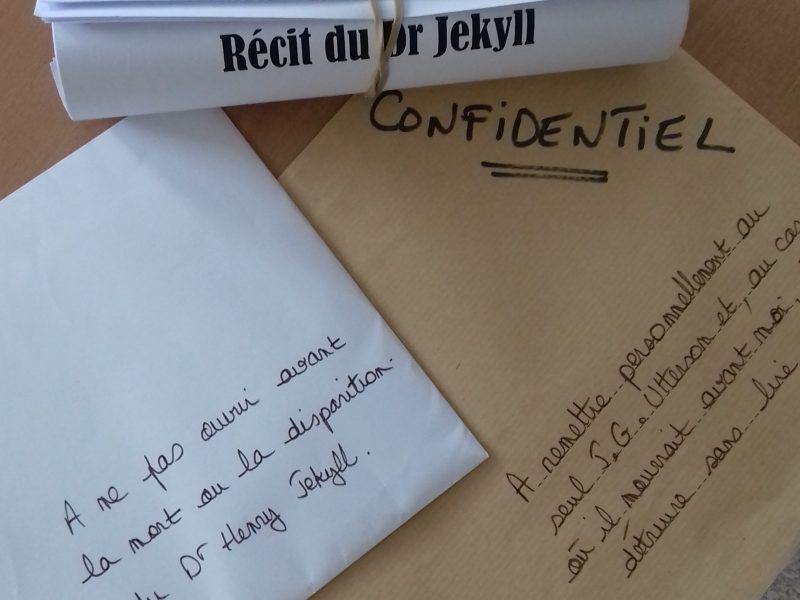 Récit du Dr Jekyll
CONFIDENTIEL
A ne pas ouvrir avant
la mort ou la disparition
du Dr Henry Jekyll.
A remettre personnellement au
seul J.G. Utterson et, au cas
où il mourrait avant moi,
détruire sans lire